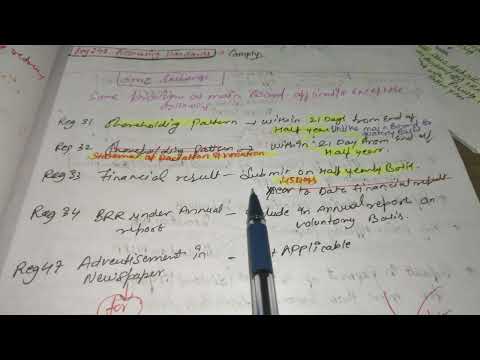 Reg 24A Accounting Standards → Comply
SME Exchange
Same provision as main Board applicable except the
following
Reg 31 Shareholding Pattern → within 21 Days from End of
Half year Unlike main Board
Quarterly Basis
Reg 32 Shareholding Pattern → within 21 Day from End of
Statement of Deviation & Variation Half year.
Reg 33 Financial result - Submit on Half yearly Basis.
45 Days
Year to Date financial result
Reg 34 BRR under Annual - include in Annual report on
report voluntary Basis.
Reg 47 Advertisement in Applicable
Newspaper
for